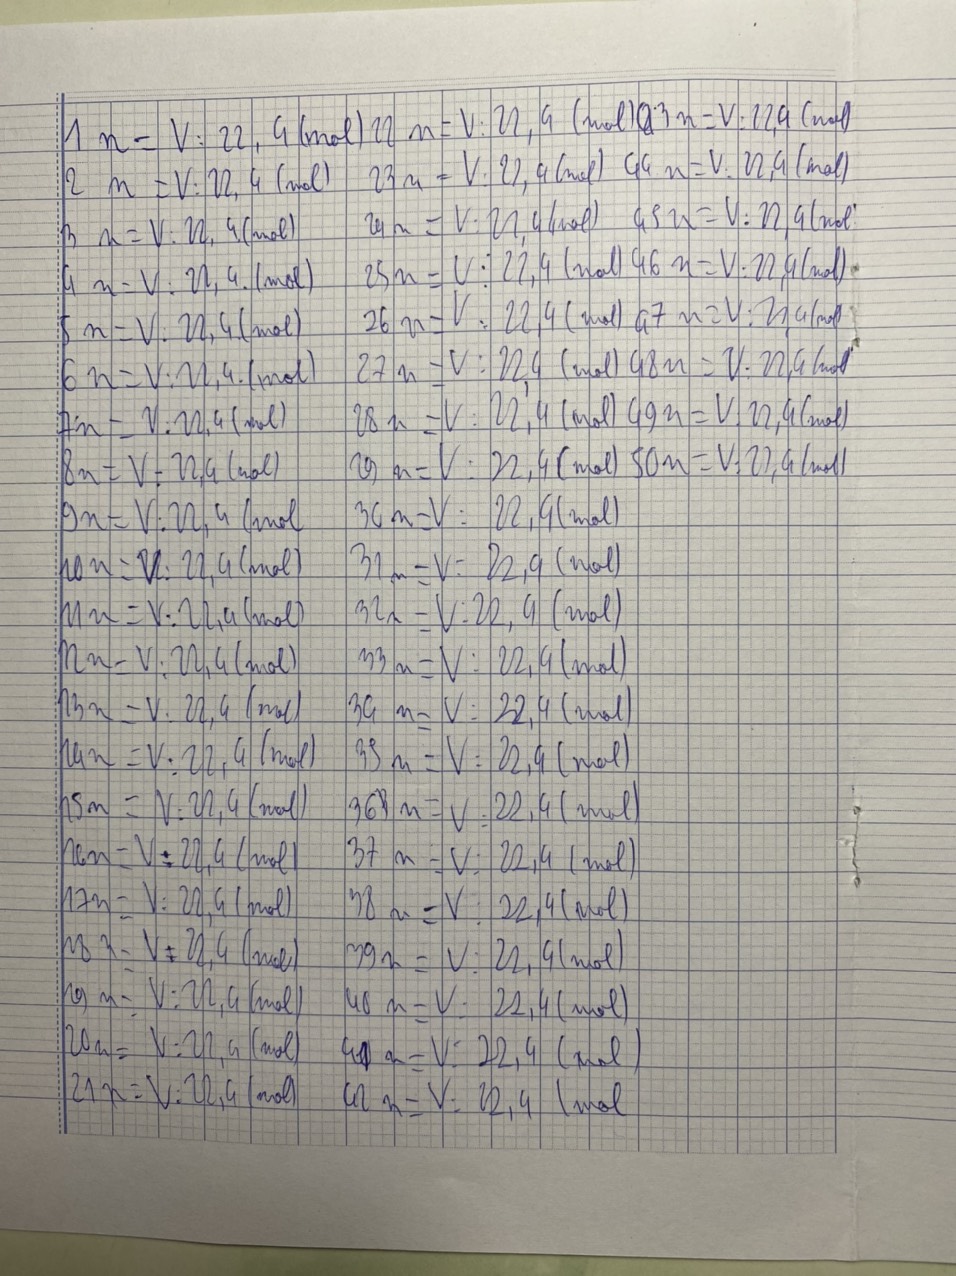 1 n = V: 22,4 (mol)
2 n = V: 22,4 (mol)
3 n = V: 22,4 (mol)
4 n = V: 22,4. (mol)
5 n = V: 22,4 (mol)
6 n = V: 22,4. (mol)
7 n = V: 22,4 (mol)
8 n = V: 22,4 (mol)
9 n = V: 22,4 (mol
10 n = V: 22,4 (mol)
11 n = V: 22,4 (mol)
12 n = V: 22,4 (mol)
13 n = V: 22,4 (mol)
14 n = V: 22,4 (mol)
15 n = V: 22,4 (mol)
16 n = V: 22,4 (mol)
17 n = V: 22,4 (mol)
18 n = V: 22,4 (mol)
19 n = V: 22,4 (mol)
20 n = V: 22,4 (mol)
21 n = V: 22,4 (mol)
22 n = V: 22,4 (mol)
23 n = V: 22,4 (mol)
24 n = V: 22,4 (mol)
25 n = V: 22,4 (mol)
26 n = V: 22,4 (mol)
27 n = V: 22,4 (mol)
28 n = V: 22,4 (mol)
29 n = V: 22,4 (mol)
30 n = V: 22,4 (mol)
31 n = V: 22,4 (mol)
32 n = V: 22,4 (mol)
33 n = V: 22,4 (mol)
34 n = V: 22,4 (mol)
35 n = V: 22,4 (mol)
36 n = V: 22,4 (mol)
37 n = V: 22,4 (mol)
38 n = V: 22,4 (mol)
39 n = V: 22,4 (mol)
40 n = V: 22,4 (mol)
41 n = V: 22,4 (mol)
42 n = V: 22,4 (mol
43 n = V: 22,4 (mol)
44 n = V: 22,4 (mol)
45 n = V: 22,4 (mol
46 n = V: 22,4 (mol)
47 n = V: 22,4 (mol)
48 n = V: 22,4 (mol)
49 n = V: 22,4 (mol)
50 n = V: 22,4 (mol)